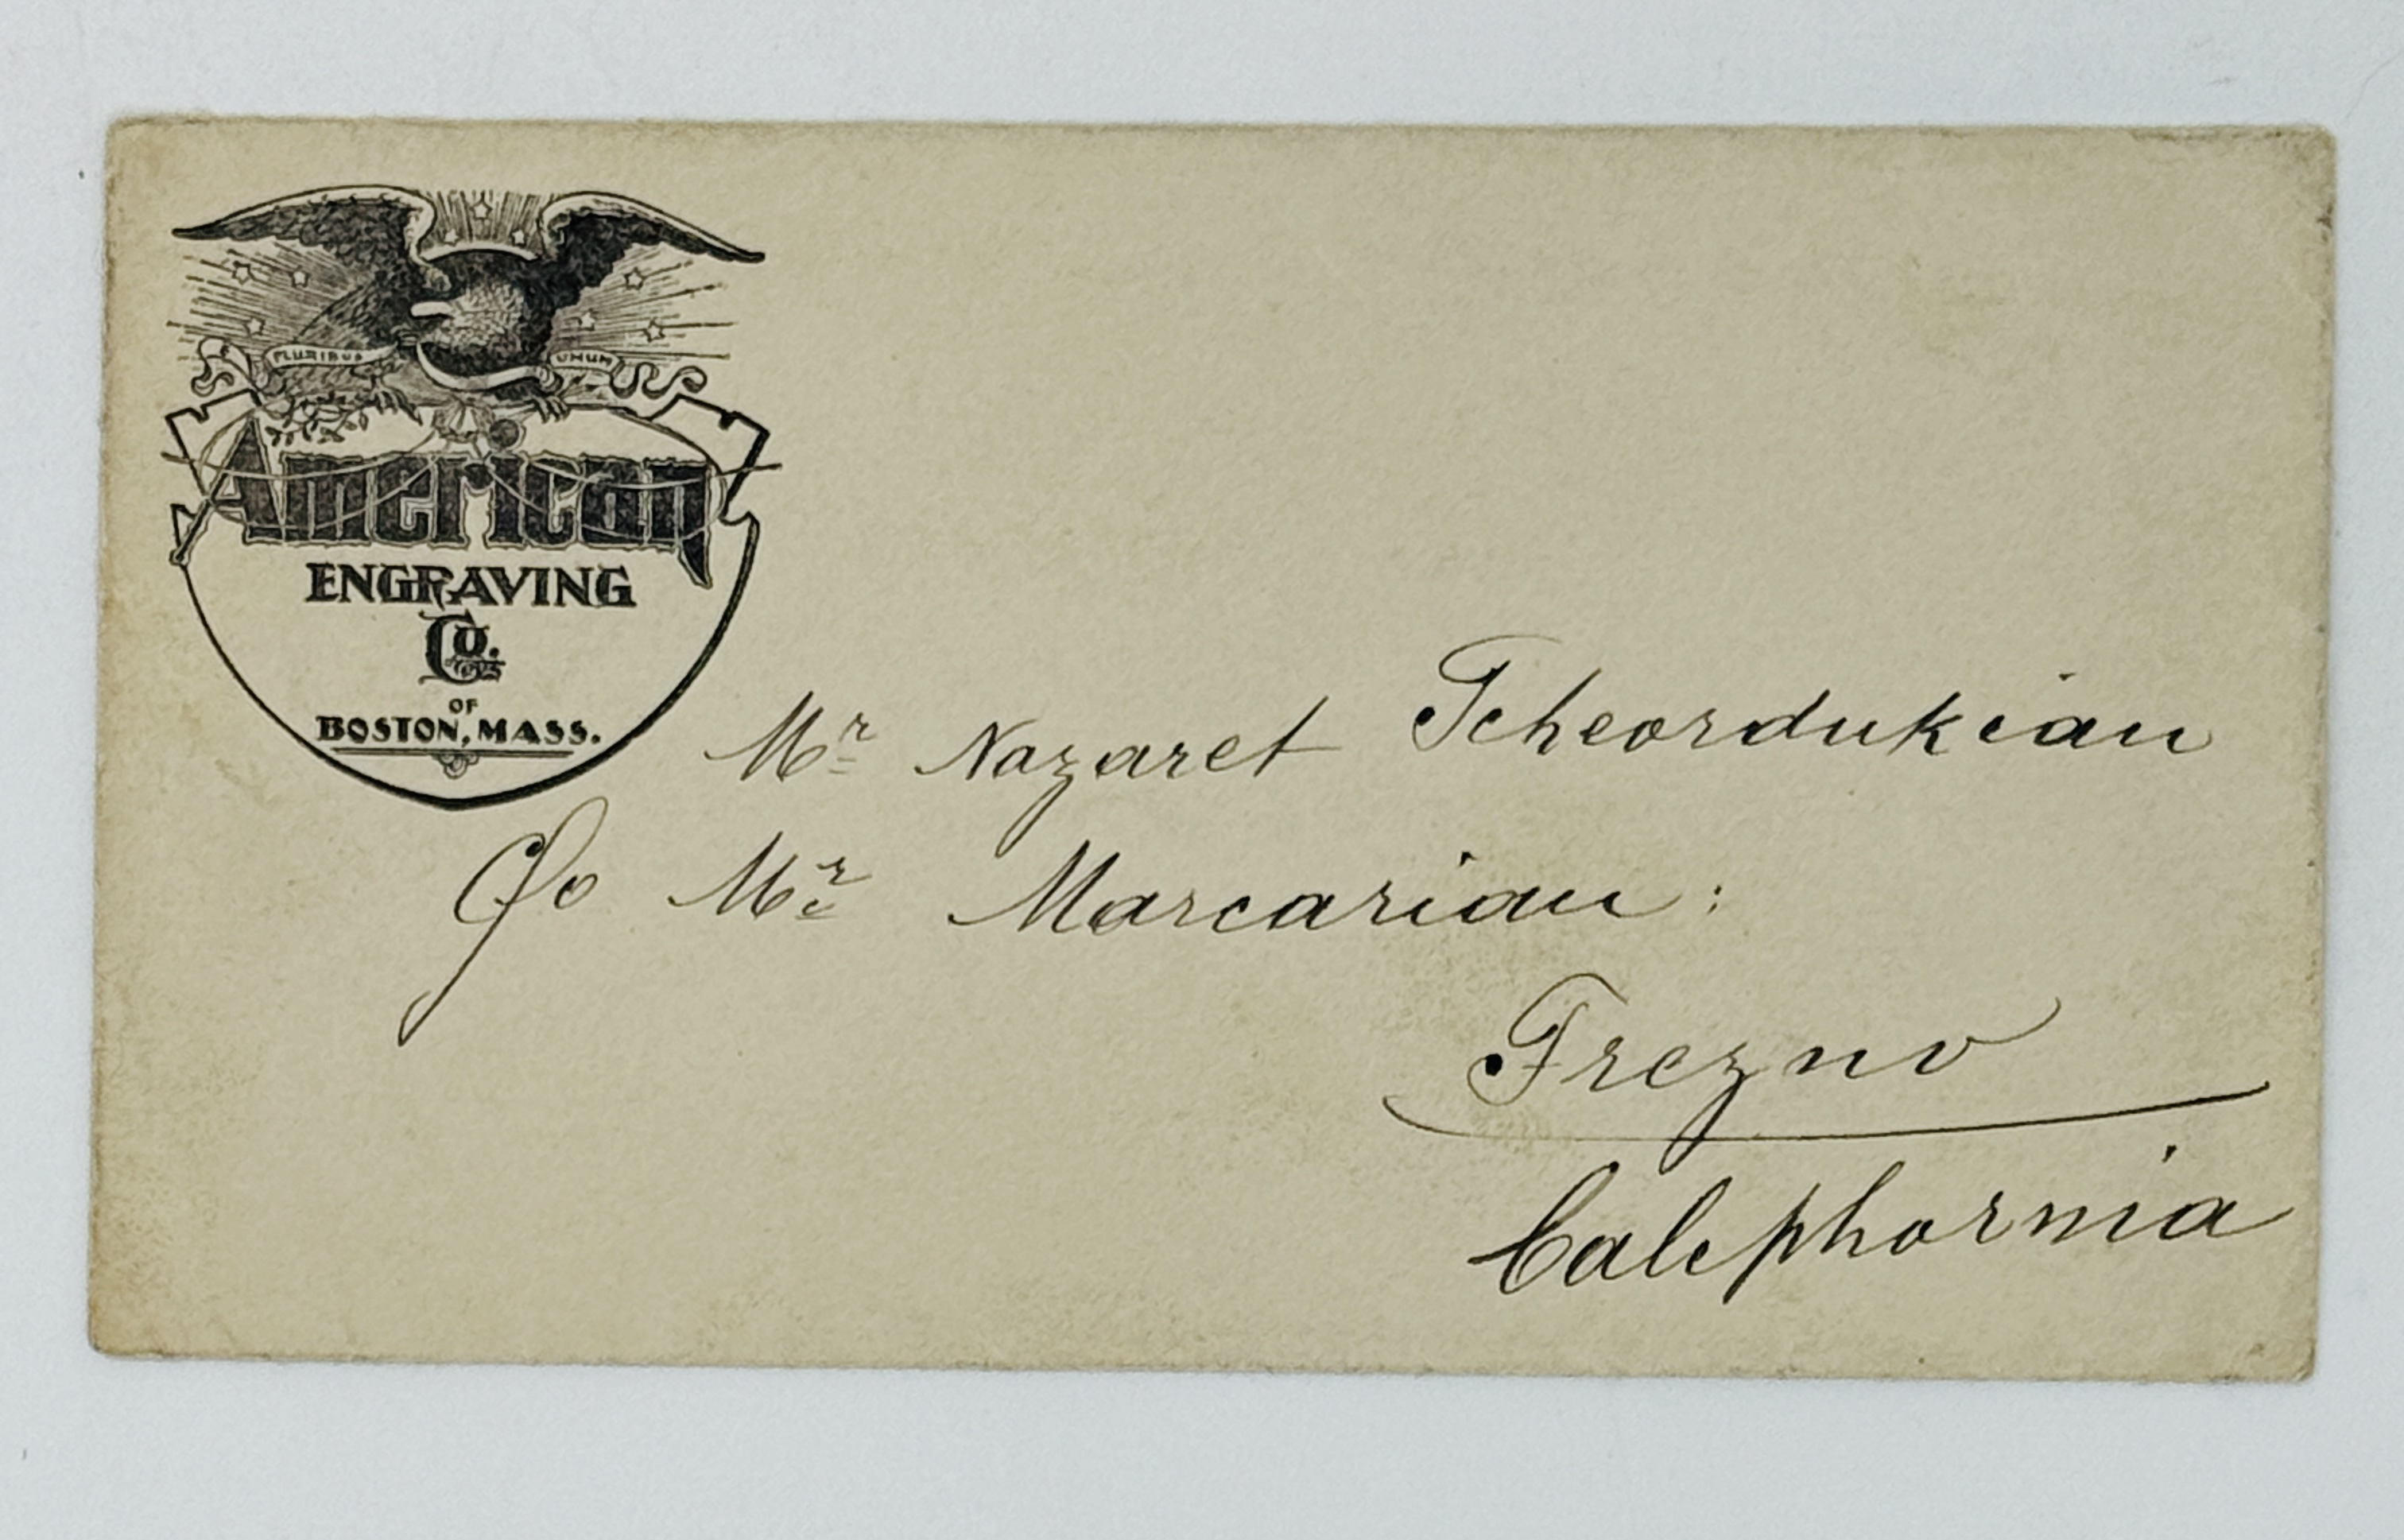 PLURIBUS UNUM
American
ENGRAVING
Co.
OF
BOSTON, MASS.
Mr Nazaret Tcheordukian
C/o Mr Marcarian:
Frezno
Calephornia